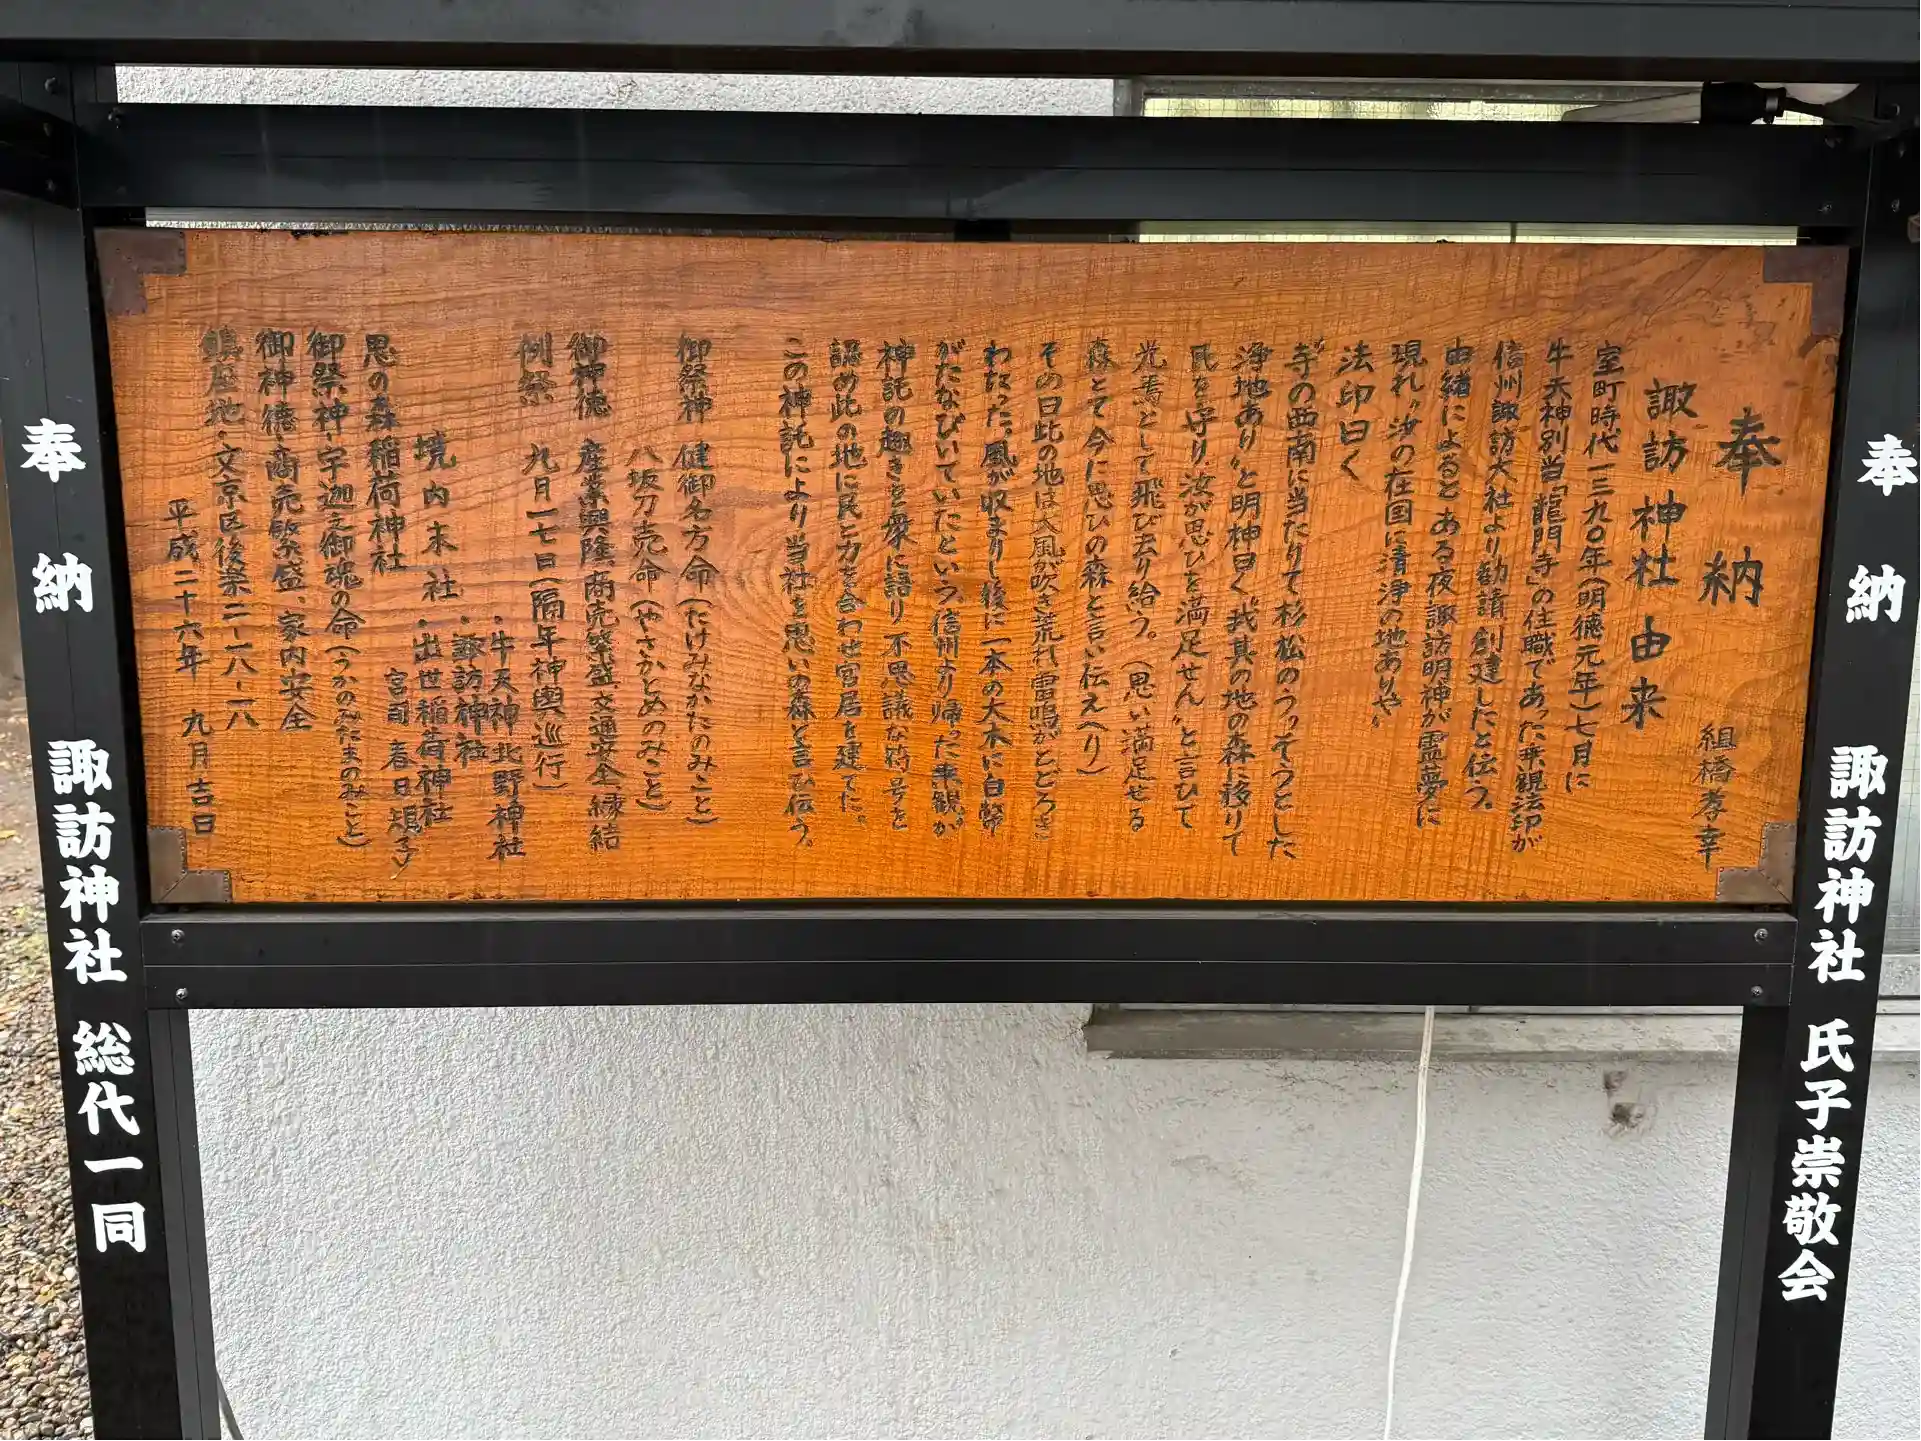 奉納
組橋孝幸
諏訪神社由来
室町時代一三九〇年(明徳元年)七月に
牛天神別当「龍門寺」の住職であった乗観法印が
信州諏訪大社より勧請創建したと伝う。
由緒によるとある夜諏訪明神が霊夢に
現れ〝汝の在国に清浄の地ありや〟
法印曰く
〝寺の西南に当たりて杉松のうっそうとした
浄地あり〟と明神曰く〝我其の地の森に移りて
民を守り、汝が思ひを満足せん〟と言ひて
光焉として飛び去り給う。(思い満足せる
森とて今に思ひの森と言い伝えへり)
その日此の地は大風が吹き荒れ雷鳴がとどろき
わたった。風が収まりし後に一本の大木に白幣
がたなびいていたという。信州より帰った乗観が
神託の趣きを衆に語り不思議な符号を
認め此の地に民と力を合わせ宮居を建てた。
この神託により当社を思いの森と言ひ伝う。
御祭神 健御名方命(たけみなかたのみこと)
八坂刀売命(やさかとめのみこと)
御神徳 産業興隆、商売繁盛、交通安全、縁結
例祭 九月二七日(隔年神輿巡行)
・牛天神北野神社
・諏訪神社
境内末社・出世稲荷神社
宮司 春日規子
思の森稲荷神社
御祭神・宇迦之御魂の命(うかのみたまのみこと)
御神徳・商売繁盛、家内安全
鎮座地・文京区後楽二ー一八ー一八
平成二十六年 九月吉日
奉納 諏訪神社 氏子崇敬会
奉納 諏訪神社 総代一同